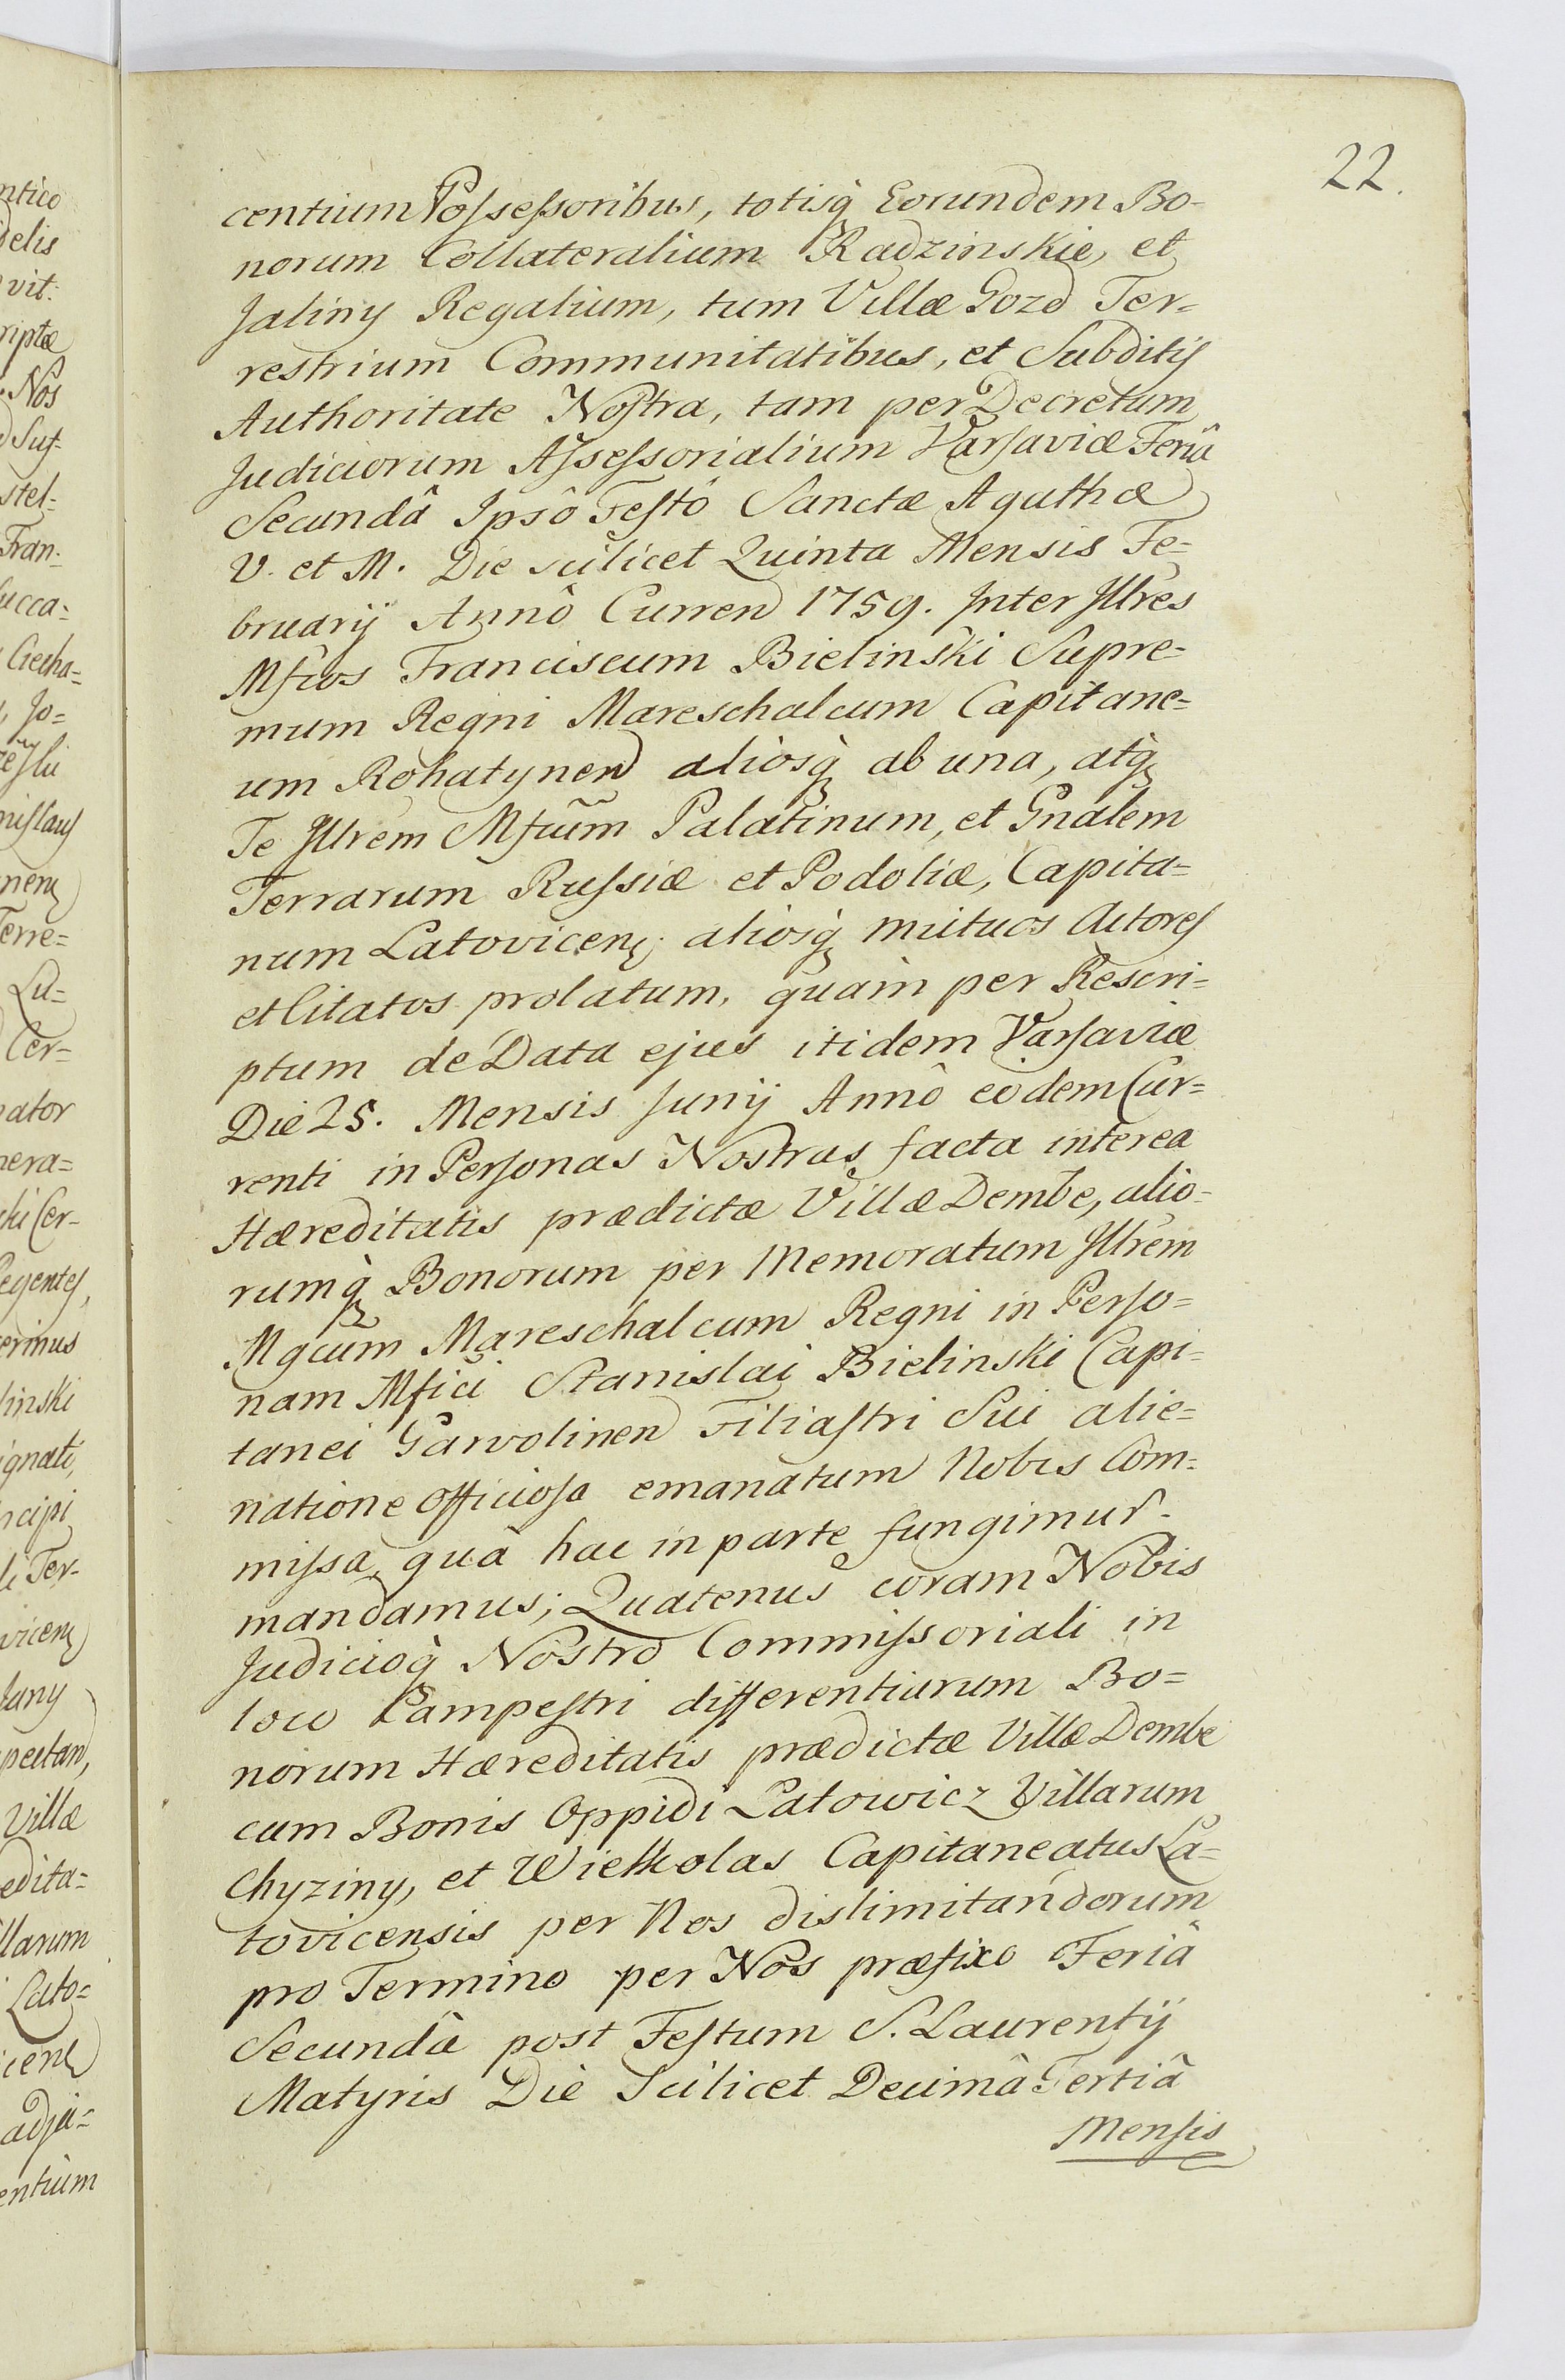 22.
centium Possessoribus, totisq̀ Eorundem Bo-
norum Collateralium Radzinskie, et
Jaliny Regalium, tum Villæ Gozd Ter-
restrium Communitatibus, et Subditis
Authoritate Nostra, tam per Decretum
Judiciorum Assessorialium Varsaviæ Feriâ
Secundâ Ipsô Festô Sanctæ Agathæ
V. et M. Die scilicet Quinta Mensis Fe=
bruarij Annô Curren 1759. Inter Jllres
Mficos Franciscum Bielinski Supre-
mum Regni Mareschalcum Capitane=
um Rohatynen aliosq̀ ab una, atq̀
Te Jllrem Mficum Palatinum, et Gnalem
Terrarum Russiæ et Podoliæ, Capita=
num Latovicen: aliosq̀ mutuos Actores
et Citatos prolatum, quam per Rescri=
ptum de Data ejus itidem Varsaviæ
Die 25. Mensis Junij Annô eodem Cur=
renti in Personas Nostras facta interea
Hæreditatis prædictæ Villæ Dembe, alio-
rumq̀ Bonorum per Memoratum Jllrem
Mgcum Mareschalcum Regni in Perso=
nam Mfici Stanislai Bielinski Capi-
tanei Garvolinen Filiastri Sui alie=
natione officiosa emanatum Nobis Com=
missa, quâ hac in parte fungimur.
mandamus; Quatenus coram Nobis
Judicioq̀ Nostro Commissoriali in
loco Campestri differentiarum Bo=
norum Hæreditatis prædictæ Villæ Dembe
cum Bonis Oppidi Latowicz Villarum
Chyziny, et Wielkolas Capitaneatus La=
tovicensis per Nos dislimitandorum
pro Termino per Nos præfixo Feriâ
Secundâ post Festum S. Laurentij
Matyris Die Scilicet Decimâ Tertiâ
Mensis
ntico
delis
vit.
riptæ
Nos
stel-
Fran-
ucca-
Ciecha=
Jo=
nislaus
nen
Terre=
Lu=
Cer=
ator
nera=
ski Cer-
egentes,
erinus
linski
ignati,
ncipi
li Ter-
vicen
Juny
pectan,
Villæ
edita=
llarum
Lato=
icen
adja=
entium